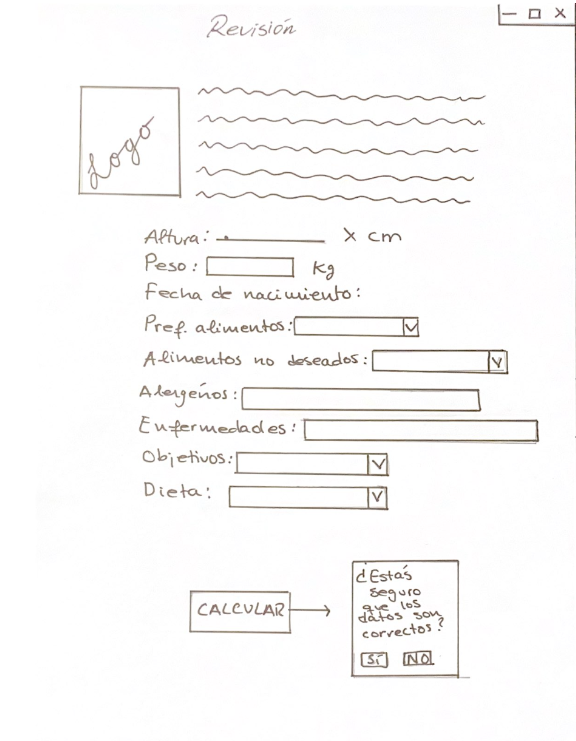 Revisión
Logo
Altura: X cm
Peso: Kg
Fecha de nacimiento:
Pref. alimentos:
Alimentos no deseados:
Alergeños:
Enfermedades:
Objetivos:
Dieta:
CALCULAR
¿Estás
seguro
que los
datos son
correctos?
SÍ NO